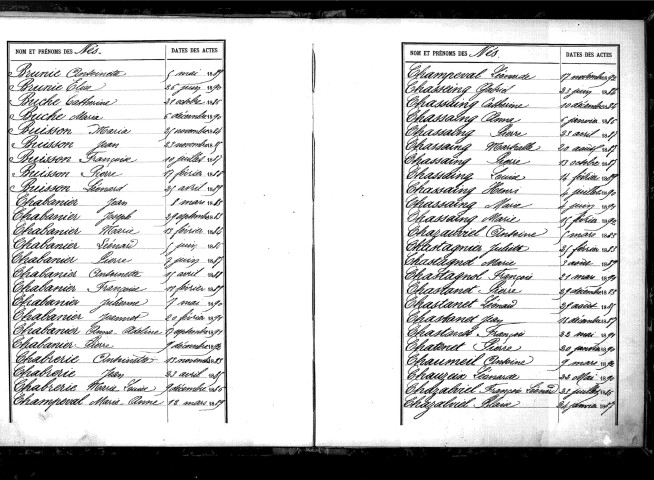 NOM ET PRÉNOMS DES Nés. DATES DES ACTES
Brunie Antoinette 5 mai
Brunie Elise 26 juin
Buche Catherine 21 octobre
Buche Marie 6 décembre
Buisson Maria 25 novembre
Buisson Jean 23 novembre
Buisson Françoise 10 juillet
Buisson Pierre 17 février
Buisson Léonard 25 avril
Chabanier Jean 8 mars
Chabanier Joseph 29 septembre
Chabanier Marie 18 février
Chabanier Léonard 5 juin
Chabanier Pierre 2 juin
Chabanier Antoinette 15 avril
Chabanier Françoise 18 février
Chabanier Julienne 7 mai
Chabanier Jeannet 20 février
Chabanier Anna Adeline 17 septembre
Chabanier Pierre 9 décembre
Chabrerie Antoinette 18 novembre
Chabrerie Jean 23 avril
Chabrerie Marie Louise 9 décembre
Champeval Marie Anne 12 mars
NOM ET PRÉNOMS DES Nés. DATES DES ACTES
Champeval Léonarde 17 novembre
Chassaing Gabriel 23 juin
Chassaing Catherine 10 décembre
Chassaing Anna 6 janvier
Chassaing Pierre 23 avril
Chassaing Martial 20 août
Chassaing Pierre 13 octobre
Chassaing Louise 14 février
Chassaing Henri 4 juillet
Chassaing Marie 4 juin
Chassaing Marie 15 février
Chazalviel Antoine 5 mars
Chastagnier Juliette 25 février
Chastagnol Marie 2 août
Chastagnol François 21 mars
Chastanet Pierre 29 décembre
Chastanet Léonard 29 août
Chastanet Jean 18 décembre
Chastanet François 22 mai
Chastanet Pierre 20 janvier
Chaumeil Antoine 9 mars
Chauzeix Léonarde 22 Mai
Chazalviel François Léonard 23 juillet
Chazalviel Blaise 24 janvier